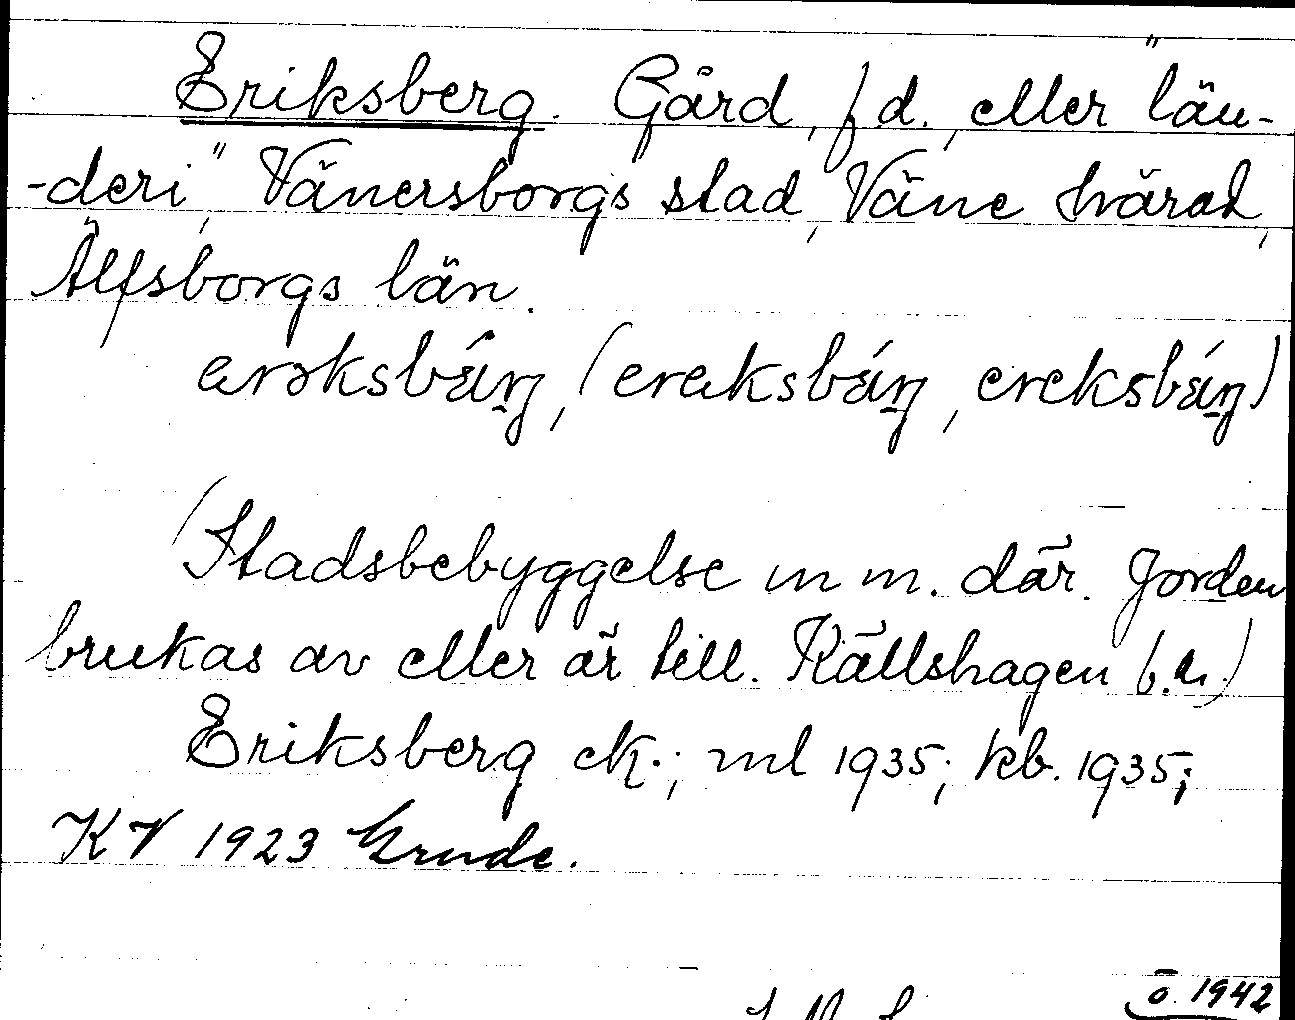 Eriksberg. Gård, f d., eller "län-
-deri", Vänersborgs stad, Väne härad,
Älfsborgs län.
(Stadsbebyggelse m m. där. Jorden
brukas av eller är till. Källshagen s.u.)
Eriksberg ek.; ml 1935; kb. 1935;
KV 1923 Grude.
ö 1942